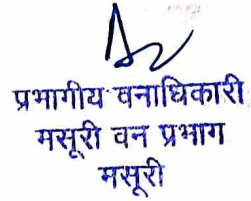 प्रभागीय वनाधिकारी
मसूरी वन प्रभाग
मसूरी